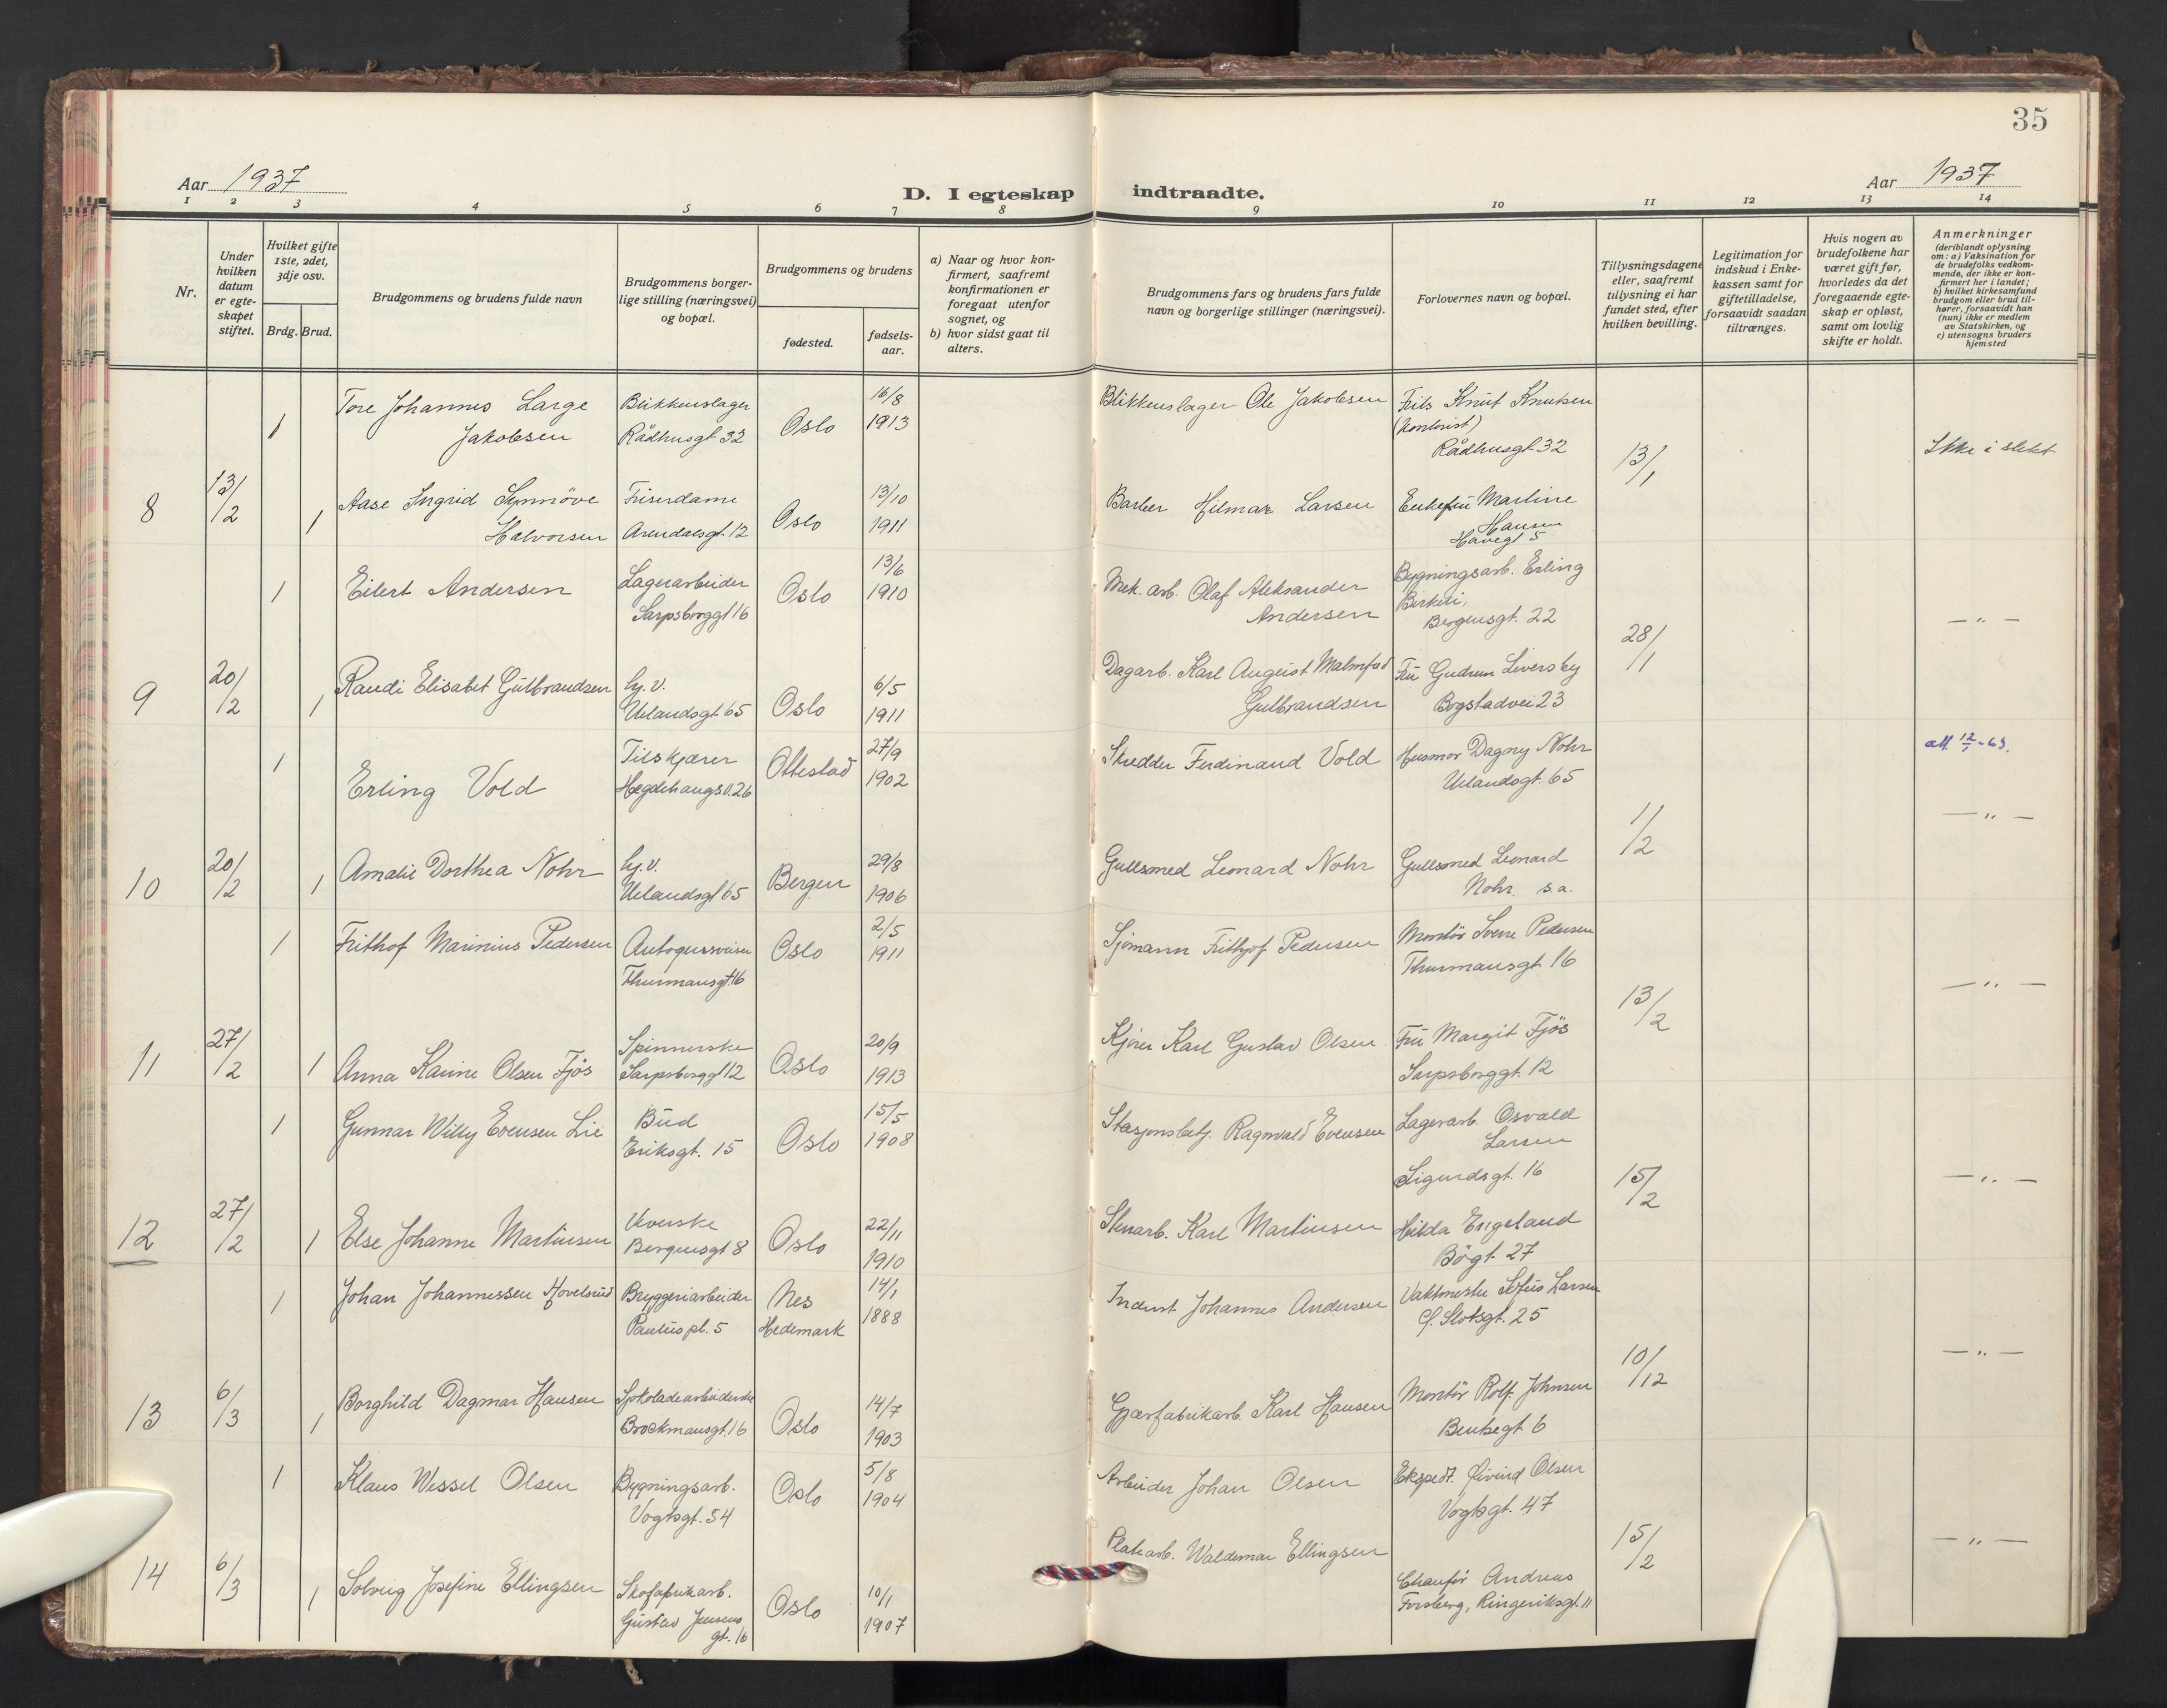 35
Aar 1937
D. I egteskap indtraadte.
Aar 1937
1 2 3 4 5 6 7 8 9 10 11 12 13 14
Nr.
Under hvilken datum er egte-skapet stiftet.
Hvilket gifte 1ste, 2det, 3dje osv.
Brdg. Brud.
Brudgommens og brudens fulde navn
Brudgommens borger-lige stilling (næringsvei) og bopæl.
Brudgommens og brudens
fødested.
fødsels-aar.
a) Naar og hvor kon-firmert, saafremt konfirmationen er foregaat utenfor sognet, og
b) hvor sidst gaat til alters.
Brudgommens fars og brudens fars fulde navn og borgerlige stillinger (næringsvei).
Forlovernes navn og bopæl.
Tillysningsdagene eller, saafremt tillysning ei har fundet sted, efter hvilken bevilling.
Legitimation for indskud i Enke-kassen samt for giftetilladelse, forsaavidt saadan tiltrænges.
Hvis nogen av brudefolkene har været gift før, hvorledes da det foregaaende egte-skap er opløst, samt om lovlig skifte er holdt.
Anmerkninger
(deriblandt oplysning om: a) Vaksination for de brudefolks vedkom-mende, der ikke er kon-firmert her i landet; b) hvilket kirkesamfund brudgom eller brud til-hører, forsaavidt han (hun) ikke er medlem av Statskirken, og c) utensogns bruders hjemsted
1 Tore Johannes Large Blikkenslager 16/8 Blikkenslager Ole Jakobsen Frits Knut Knutsen
Jakobsen Rådhusgt 32 Oslo 1913 (Kontorist)
Rådhusgt 32 13/1 Ikke i slekt
8 13/2 1 Aase Ingrid Synnöve Friserdame 13/10 Barber Hilmar Larsen Enkefru Martine
Halvorsen Arendalsgt. 12 Oslo 1911 Hansen
Havegt 5
1 Eilert Andersen Lagerarbeider 13/6 Mek. arb. Olaf Aleksander Bygningsarb. Erling
Sarpsborggt 16 Oslo 1910 Andersen Birkeli,
Bergensgt. 22 28/1 — " —
9 20/2 1 Randi Elisabet Gulbrandsen hj. v. 6/5 Dagarb. Karl August Malmfred Fru Gudrun Liversby
Uelandsgt. 65 Oslo 1911 Gulbrandsen Bogstadvei 23
1 Erling Vold Tilskjærer Ottestad 27/9 Skredder Ferdinand Vold Husmor Dagny Nohr
Hegdehaugsv. 26 1902 Uelandsgt. 65 1/2 — " —
att. 12/1-63.
10 20/2 1 Amalie Dorthea Nohr hj. v. 29/8 Gullsmed Leonard Nohr Gullsmed Leonard
Uelandsgt 65 Bergen 1906 Nohr s.a.
1 Frithof Marinius Pedersen Autogensveiser Oslo 2/5 Sjömann Frithjof Pedersen Montör Sverre Pedersen
Thurmansgt. 16 1911 Thurmansgt. 16 13/2 — " —
11 27/2 1 Anna Karine Olsen Fjös Spinnerske 20/9 Kjörer Karl Gustav Olsen Fru Margit Fjös
Sarpsborggt 12 Oslo 1913 Sarpsborggt. 12
1 Gunnar Willy Evensen Lie Bud 15/5 Stasjonsbetj. Ragnvald Evensen Lagerarb. Osvald
Eriksgt. 15 Oslo 1908 Larsen
Sigurdsgt. 16 15/2 — " —
12 27/2 1 Else Johanne Martinsen Veverske 22/11 Stenarb. Karl Martinsen Hilda Engeland
Bergensgt 8 Oslo 1910 Bögt. 27
1 Johan Johannessen Hovelsrud Bryggeriarbeider Nes 14/1 Inderst Johannes Andersen Vaktmester Sofus Larsen
Pauluspl. 5 Hedemark 1888 C. Slotsgt. 25 10/12 — " —
13 6/3 1 Borghild Dagmar Hansen Sjokoladearbeiderske 14/7 Gjærfabrikarb. Karl Hansen Montör Rolf Johnsen
Brockmansgt. 16 Oslo 1903 Bentsegt 6
1 Klaus Wessel Olsen Bygningsarb. Oslo 5/8 Arbeider Johan Olsen Ekspedt. Öivind Olsen
Vogtsgt. 54 1904 Vogtsgt. 47 15/2 — " —
14 6/3 1 Solveig Josefine Ellingsen Skofabrikarb. Oslo 10/1 Platearb. Waldemar Ellingsen Chauför Andreas
Gustav Jensens gt. 16 1907 Forsberg, Ringeriksgt. 11